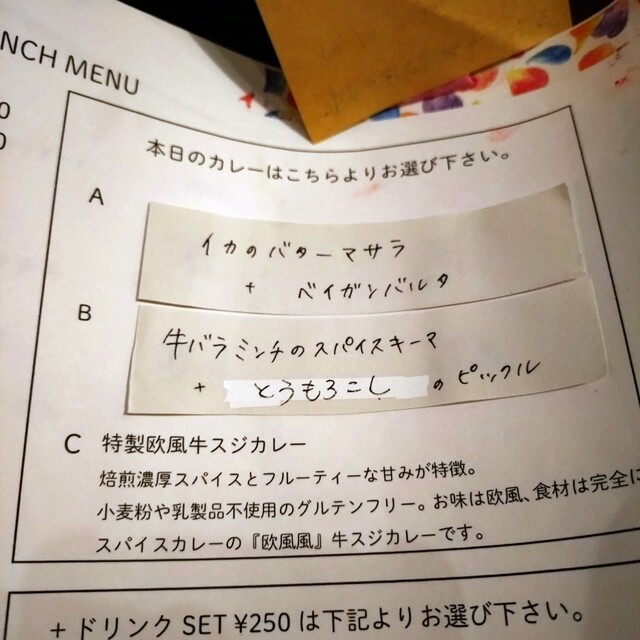 NCH MENU
0
0
本日のカレーはこちらよりお選び下さい。
A
イカのバターマサラ
+ ベイガンバルタ
B
牛バラミンチのスパイスキーマ
+ とうもろこしのピックル
C 特製欧風牛スジカレー
焙煎濃厚スパイスとフルーティーな甘みが特徴。
小麦粉や乳製品不使用のグルテンフリー。お味は欧風、食材は完全に
スパイスカレーの『欧風風』牛スジカレーです。
+ドリンク SET ¥250 は下記よりお選び下さい。